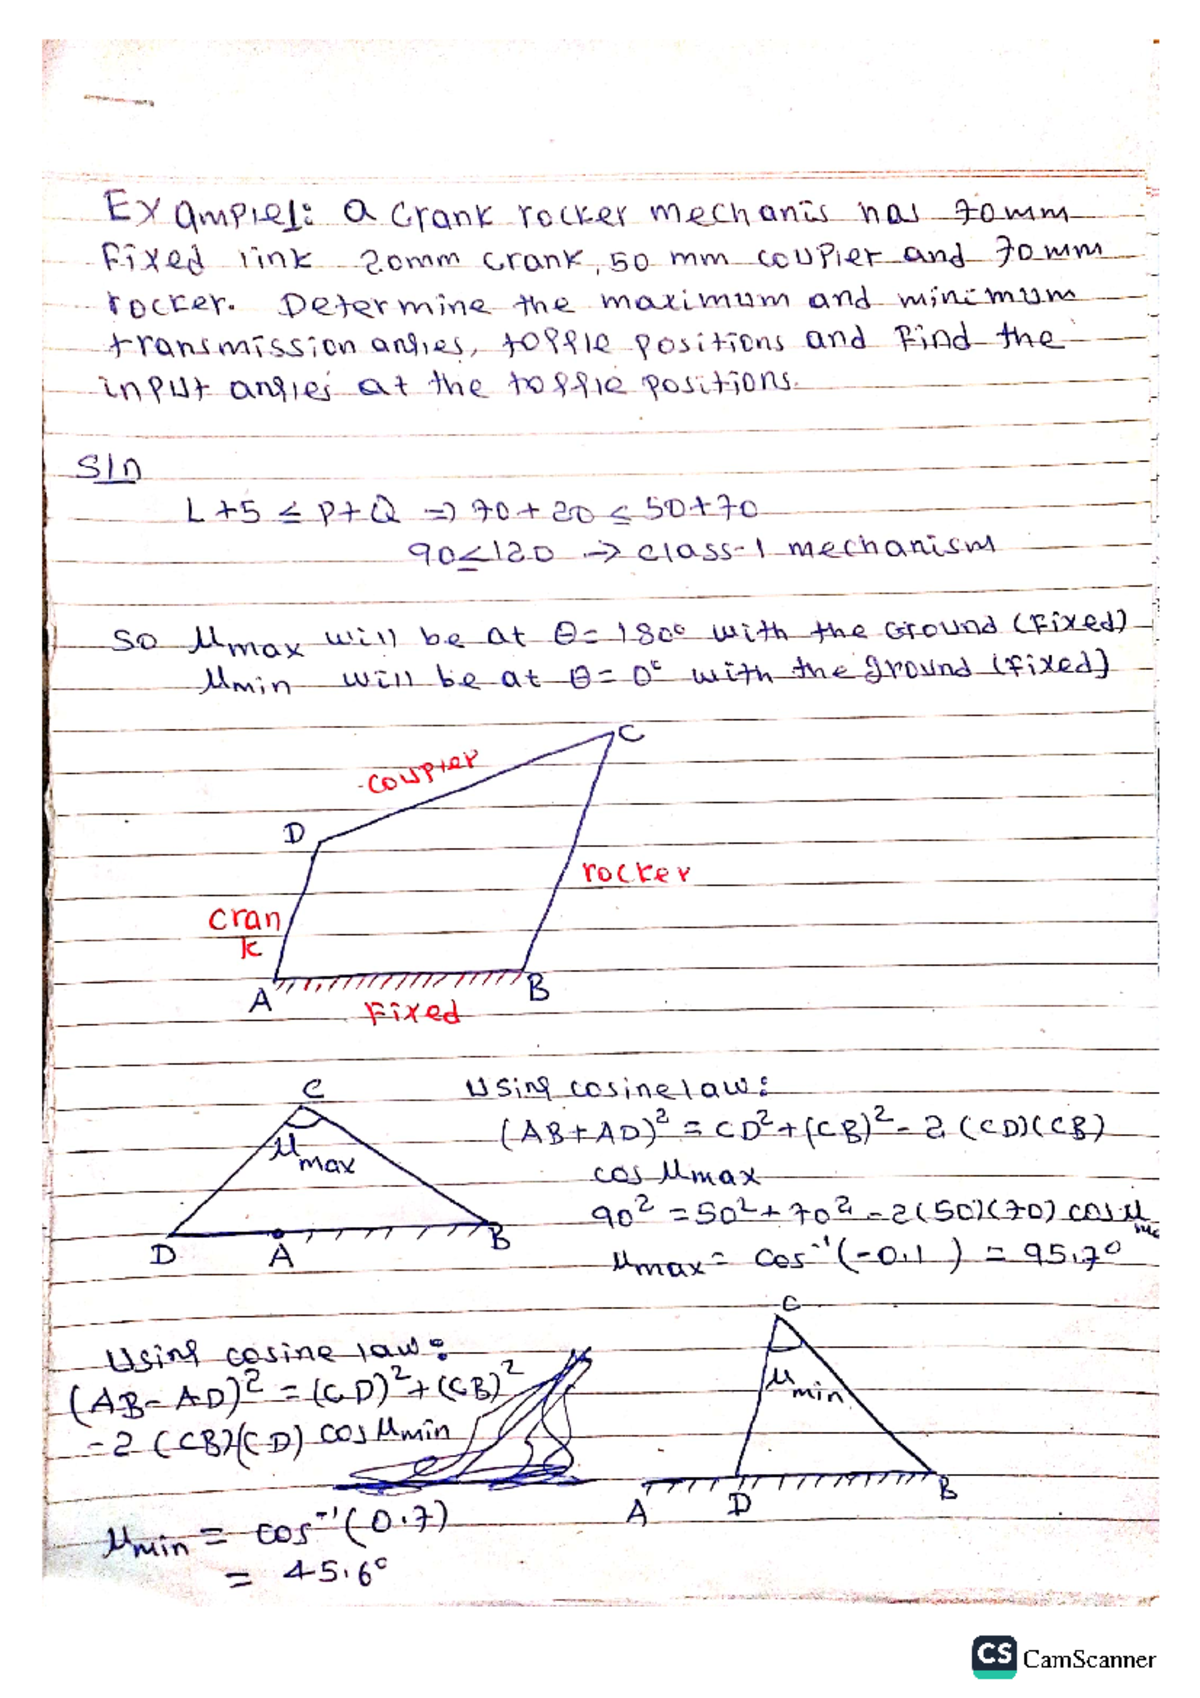 Example1: a crank rocker mechanis has 70mm
fixed link 20mm crank, 50 mm coupler and 70mm
rocker. Determine the maximum and minimum
transmission angles, toggle positions and Find the
input angles at the toggle positions.
Sln
L+S ≤ P+Q ⇒ 70+20 ≤ 50+70
90≤120 → class-1 mechanism
So μmax will be at θ=180° with the Ground (Fixed)
μmin will be at θ=0° with the ground (fixed)
C
coupler
D
rocker
cran
k
A
B
Fixed
C
μmax
D A B
Using cosine law:
(AB+AD)² = CD²+(CB)²-2(CD)(CB)
cos μmax
90² = 50²+70²-2(50)(70) cos μ
μmax = cos⁻¹(-0.1) = 95.7°
Using cosine law:
(AB-AD)² = (CD)²+(CB)²
-2(CB)(CD) cos μmin
μmin = cos⁻¹(0.7)
= 45.6°
C
μmin
A D B
CS CamScanner